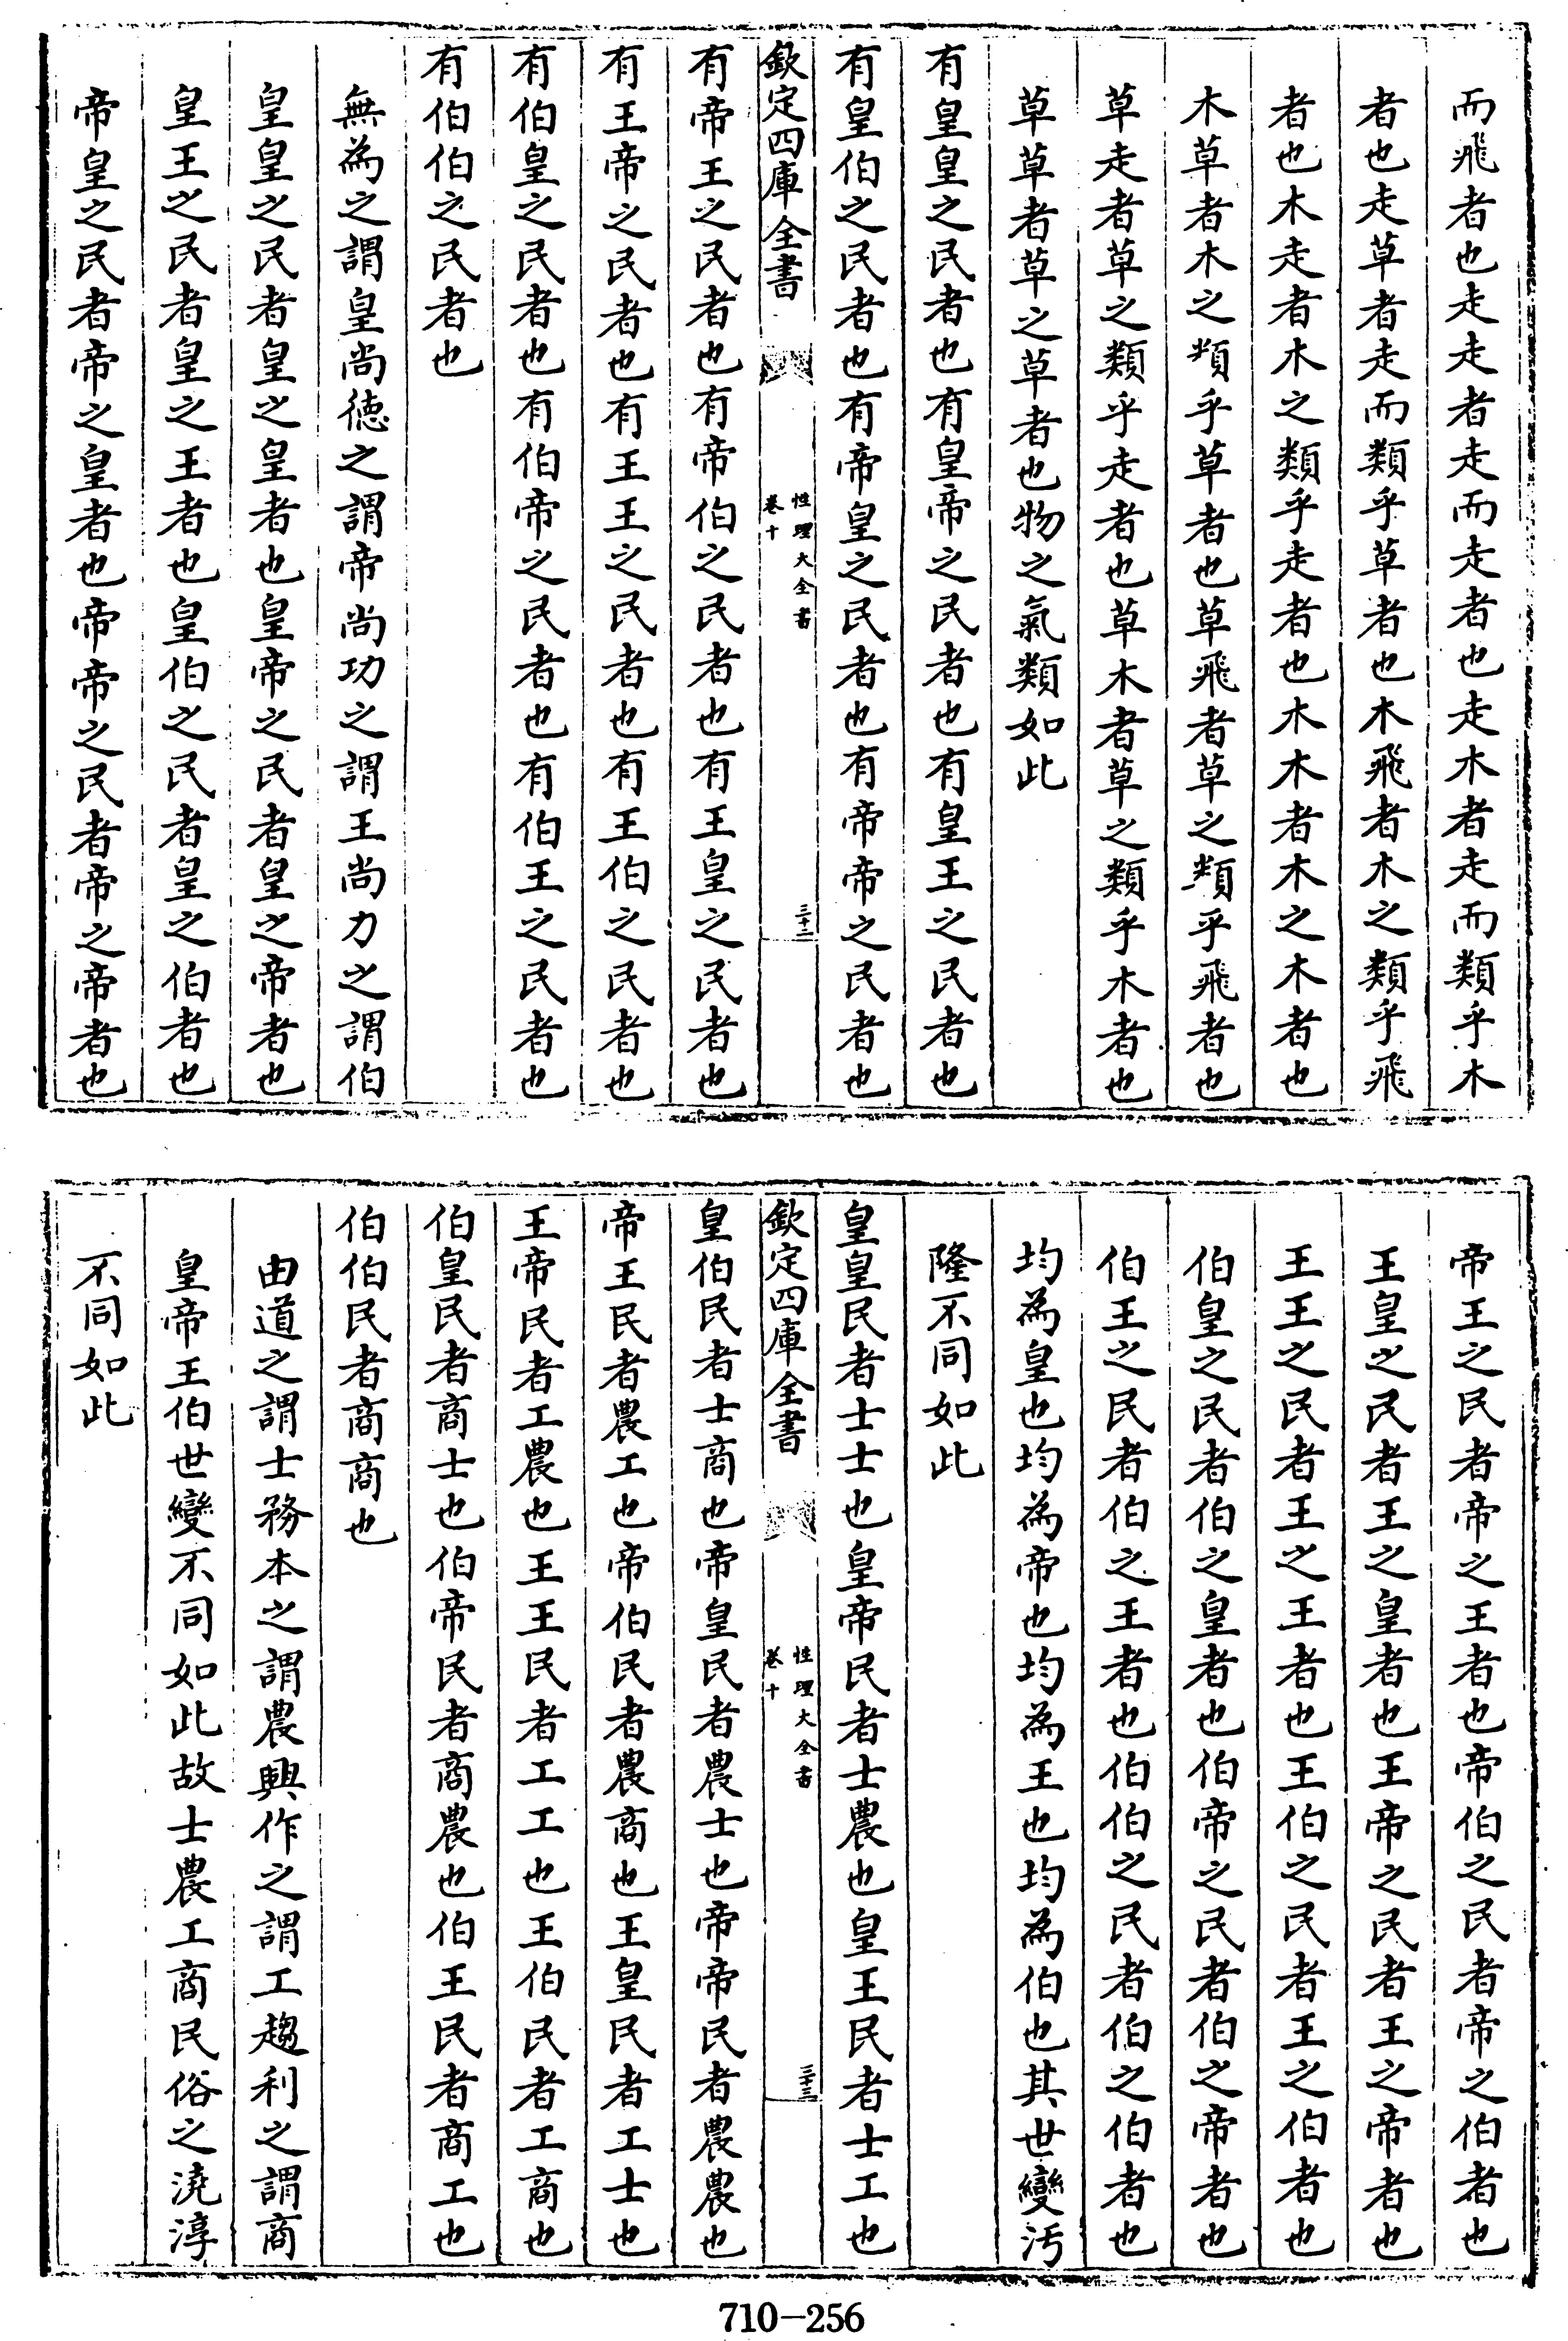 而飛者也走走者走而走者也走木者走而類乎木
者也走草者走而類乎草者也木飛者木之類乎飛
者也木走者木之類乎走者也木木者木之木者也
木草者木之𩔖乎草者也草飛者草之𩔖乎飛者也
草走者草之類乎走者也草木者草之類乎木者也
草草者草之草者也物之氣類如此
有皇皇之民者也有皇帝之民者也有皇王之民者也
有皇伯之民者也有帝皇之民者也有帝帝之民者也
欽定四庫全書
性理大全書
卷十
三十二
有帝王之民者也有帝伯之民者也有王皇之民者也
有王帝之民者也有王王之民者也有王伯之民者也
有伯皇之民者也有伯帝之民者也有伯王之民者也
有伯伯之民者也
無為之謂皇尚德之謂帝尚功之謂王尚力之謂伯
皇皇之民者皇之皇者也皇帝之民者皇之帝者也
皇王之民者皇之王者也皇伯之民者皇之伯者也
帝皇之民者帝之皇者也帝帝之民者帝之帝者也
帝王之民者帝之王者也帝伯之民者帝之伯者也
王皇之民者王之皇者也王帝之民者王之帝者也
王王之民者王之王者也王伯之民者王之伯者也
伯皇之民者伯之皇者也伯帝之民者伯之帝者也
伯王之民者伯之王者也伯伯之民者伯之伯者也
均為皇也均為帝也均為王也均為伯也其世變汚
隆不同如此
皇皇民者士士也皇帝民者士農也皇王民者士工也
欽定四庫全書
性理大全書
卷十
三十三
皇伯民者士商也帝皇民者農士也帝帝民者農農也
帝王民者農工也帝伯民者農商也王皇民者工士也
王帝民者工農也王王民者工工也王伯民者工商也
伯皇民者商士也伯帝民者商農也伯王民者商工也
伯伯民者商商也
由道之謂士務本之謂農興作之謂工趨利之謂商
皇帝王伯世變不同如此故士農工商民俗之澆淳
不同如此
710-256